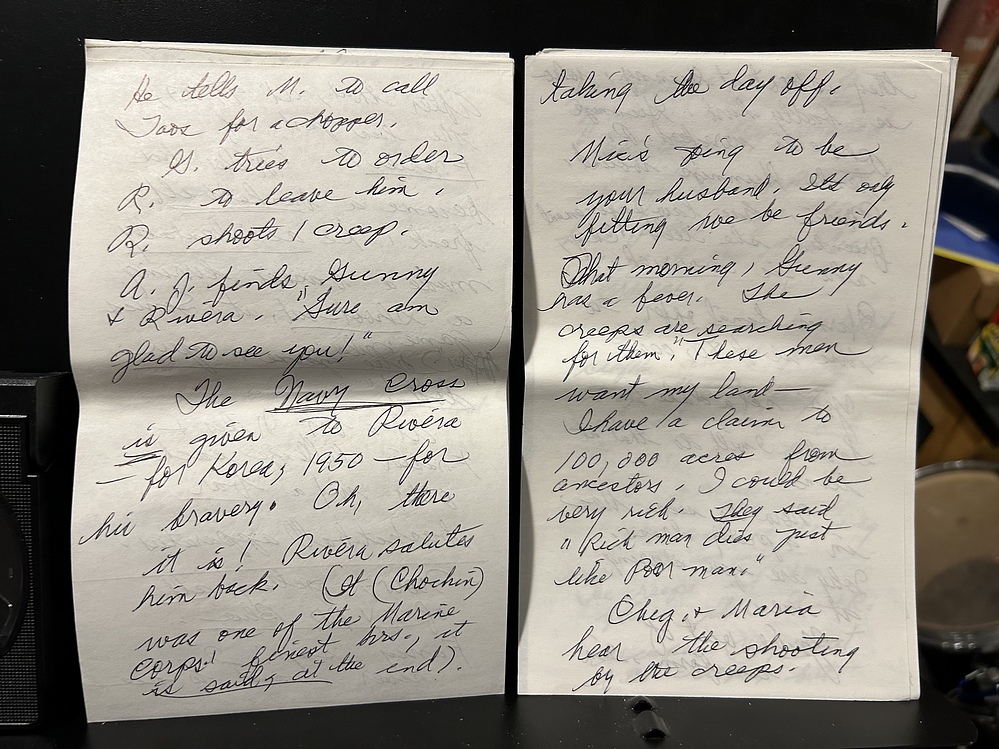 He tells M. to call
Taos for a chopper.
G. tries to order
R. to leave him.
R. shoots 1 creep.
A. J. finds Gunny
& Rivéra. "Sure am
glad to see you!"
The Navy Cross
is given to Rivéra
— for Korea, 1950 — for
his bravery. Oh, there
it is! Rivéra salutes
him back. (It (Chochin)
was one of the Marine
Corps' finest hrs., it
is said, at the end).
taking the day off.
Mic's going to be
your husband. It's only
fitting we be friends.
That morning, Gunny
has a fever. The
creeps are searching
for them. "These men
want my land—
I have a claim to
100,000 acres from
ancestors. I could be
very rich. They said
"Rich man dies just
like Poor man."
Cheg. & Maria
hear the shooting
by the creeps.